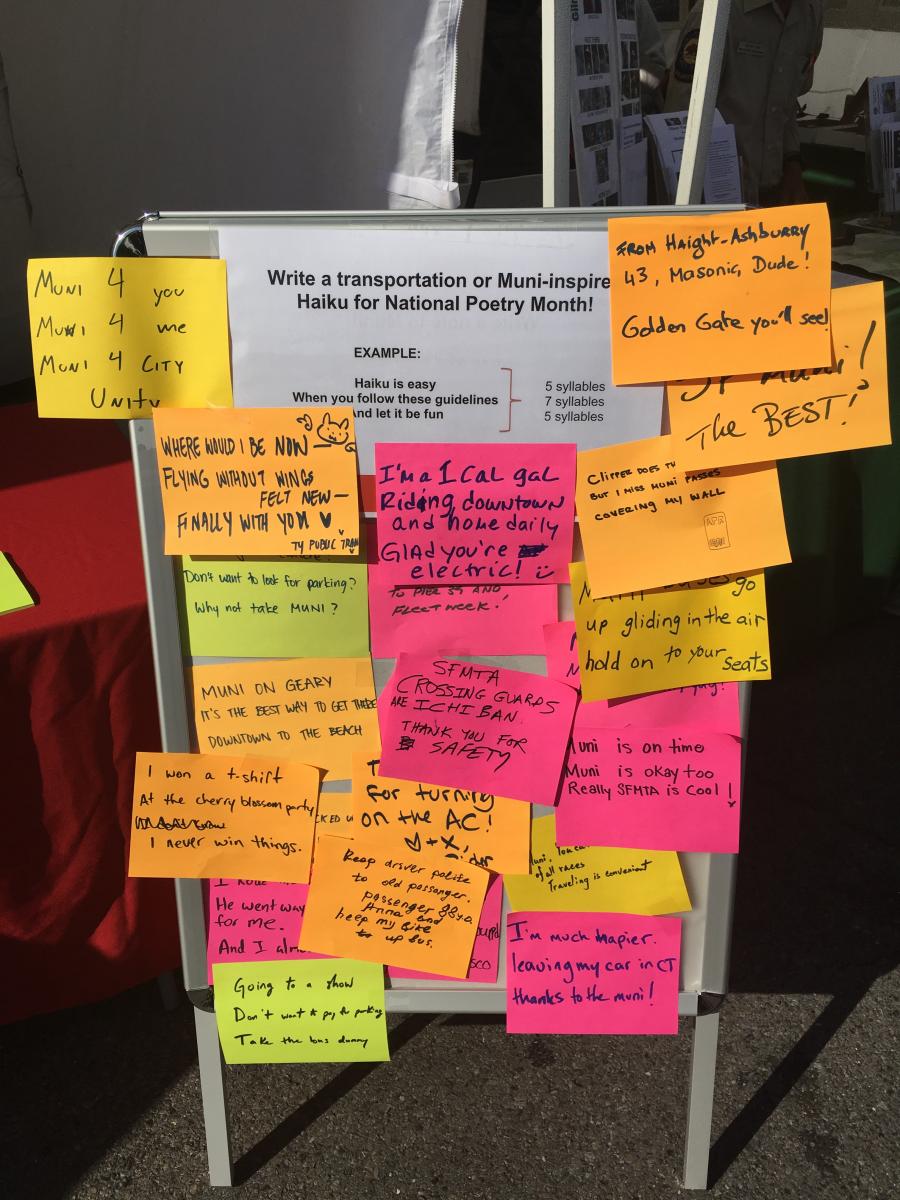 Write a transportation or Muni-inspire
Haiku for National Poetry Month!
EXAMPLE:
Haiku is easy
When you follow these guidelines
And let it be fun
5 syllables
7 syllables
5 syllables
MUNI 4 you
MUNI 4 me
MUNI 4 CITY
UNITY
FROM HAIGHT-ASHBURRY
43, MASONIC, DUDE!
Golden Gate you'll see!
SF MUNI!
The BEST!
WHERE WOULD I BE NOW—
FLYING WITHOUT WINGS
FELT NEW—
FINALLY WITH YOU
TY PUBLIC TRAN
I'm a I Cal gal
Riding downtown
and home daily
Glad you're
electric!
CLIPPER DOES
BUT I MISS MUNI PASSES
COVERING MY WALL
APR
Don't want to look for parking?
Why not take MUNI?
TO PIER 39 AND,
FLEET WEEK!
go
up gliding in the air
hold on to your seats
MUNI ON GEARY
IT'S THE BEST WAY TO GET THERE
DOWNTOWN TO THE BEACH
SFMTA
CROSSING GUARDS
ARE ICHIBAN
THANK YOU FOR
SAFETY
Muni is on time
Muni is okay too
Really SFMTA is Cool!
I won a t-shirt
At the cherry blossom party
I never win things.
for turning
on the AC!
Keep driver polite
to old passanger.
passenger
Anna and
keep my bike
up bus.
of all races
Traveling is convenient
He went way
for me.
And I
sco
I'm much hapier.
leaving my car in CT
thanks to the muni!
Going to a show
Don't want to pay for parking
Take the bus dummy